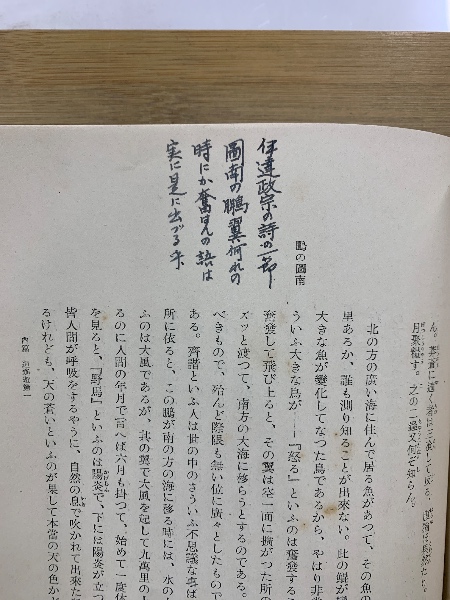 ん。
伊達政宗の詩の一節
圖南の鵬翼何れの
時にか奮はんの語は
実に是に出づる乎
鵬の圖南
北の方の廣い海に住んで居る魚があつて、その魚の
里あるか、誰も測り知ることが出來ない。此の鯤が
大きな魚が變化してなつた鳥であるから、やはり非常
ういふ大きな鳥が――『怒る』といふのは奮發する
奮發して飛び上ると、その翼は空一面に擴がつた所の
ズッと渡つて、南方の大海に移らうとするのである。
べきもので、殆んど際限も無い位に廣々としたもので
ある。齊諧といふ人は世の中のさういふ不思議な事ば
所に依ると、この鵬が南の方の海に移る時には、水の
ふのは大風であるが、其の翼で大風を起して九萬里の
るのに人間の年月で言へば六月も掛つて、始めて一度休
を見ると、『野馬』といふのは陽炎で、下には陽炎が立つ
皆人間が呼吸をするやうに、自然の息で吹かれて出來た
るけれども、天の蒼いといふのが果して本當の天の色か
內篇 逍遙遊第一